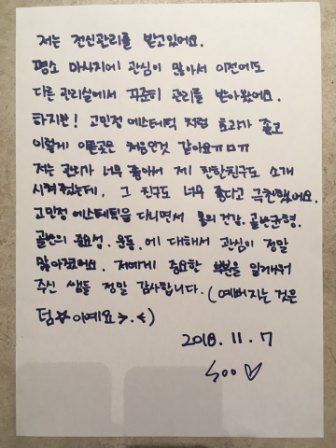 저는 전신관리를 받고있어요.
평소 마사지에 관심이 많아서 이전에도
다른 관리실에서 꾸준히 관리를 받아왔어요.
하지만! 고민정 에스테틱 처럼 효과가 좋고
이렇게 아픈곳은 처음인것 같아요ㄲㅁㄲ
저는 관리가 너무 좋아서 제 친한친구도 소개
시켜줬는데. 그 친구도 너무 좋다고 극찬했어요.
고민정 에스테틱을 다니면서 몸의 건강. 골반균형.
골반의 중요성. 운동. 에 대해서 관심이 정말
많아졌어요. 저에게 중요한 부분을 일깨워
주신 쌤들 정말 감사합니다. (예뻐지는 것은
덤이예요>.<)
2018. 11. 7
Soo♡